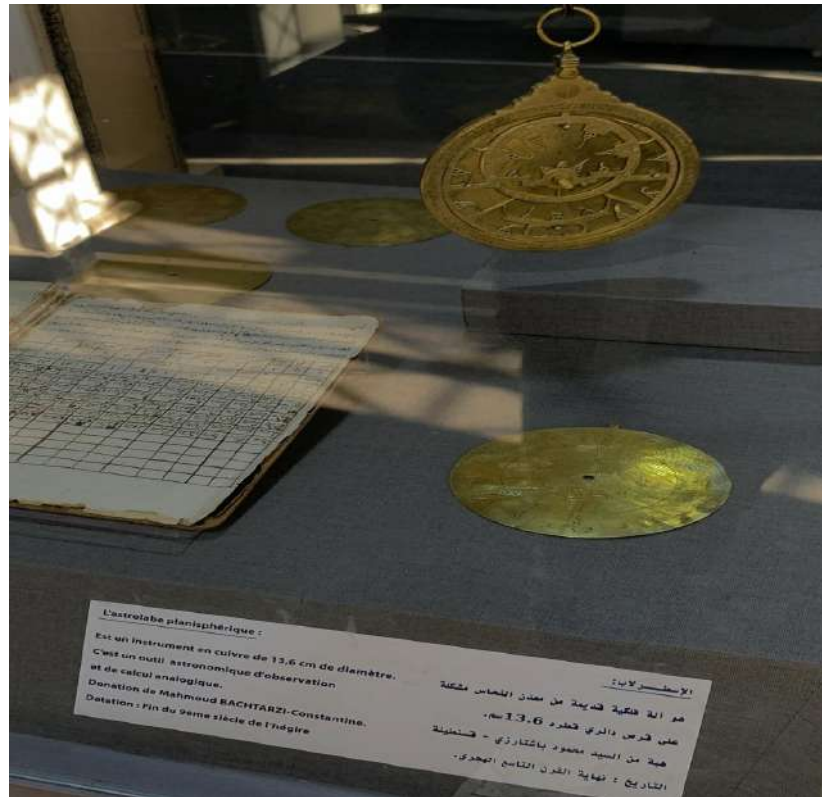 L'astrolabe planisphérique :
Est un instrument en cuivre de 13,6 cm de diamètre.
C'est un outil astronomique d'observation
et de calcul analogique.
Donation de Mahmoud BACHTARZI-Constantine.
Datation : Fin du 9ème siècle de l'hégire
الإسطــرلاب:
هو آلة فلكية قديمة من معدن النحاس مشكلة
على قرص دائري قطره 13.6 سم.
هبة من السيد محمود باشتارزي - قسنطينة
التاريخ : نهاية القرن التاسع الهجري.